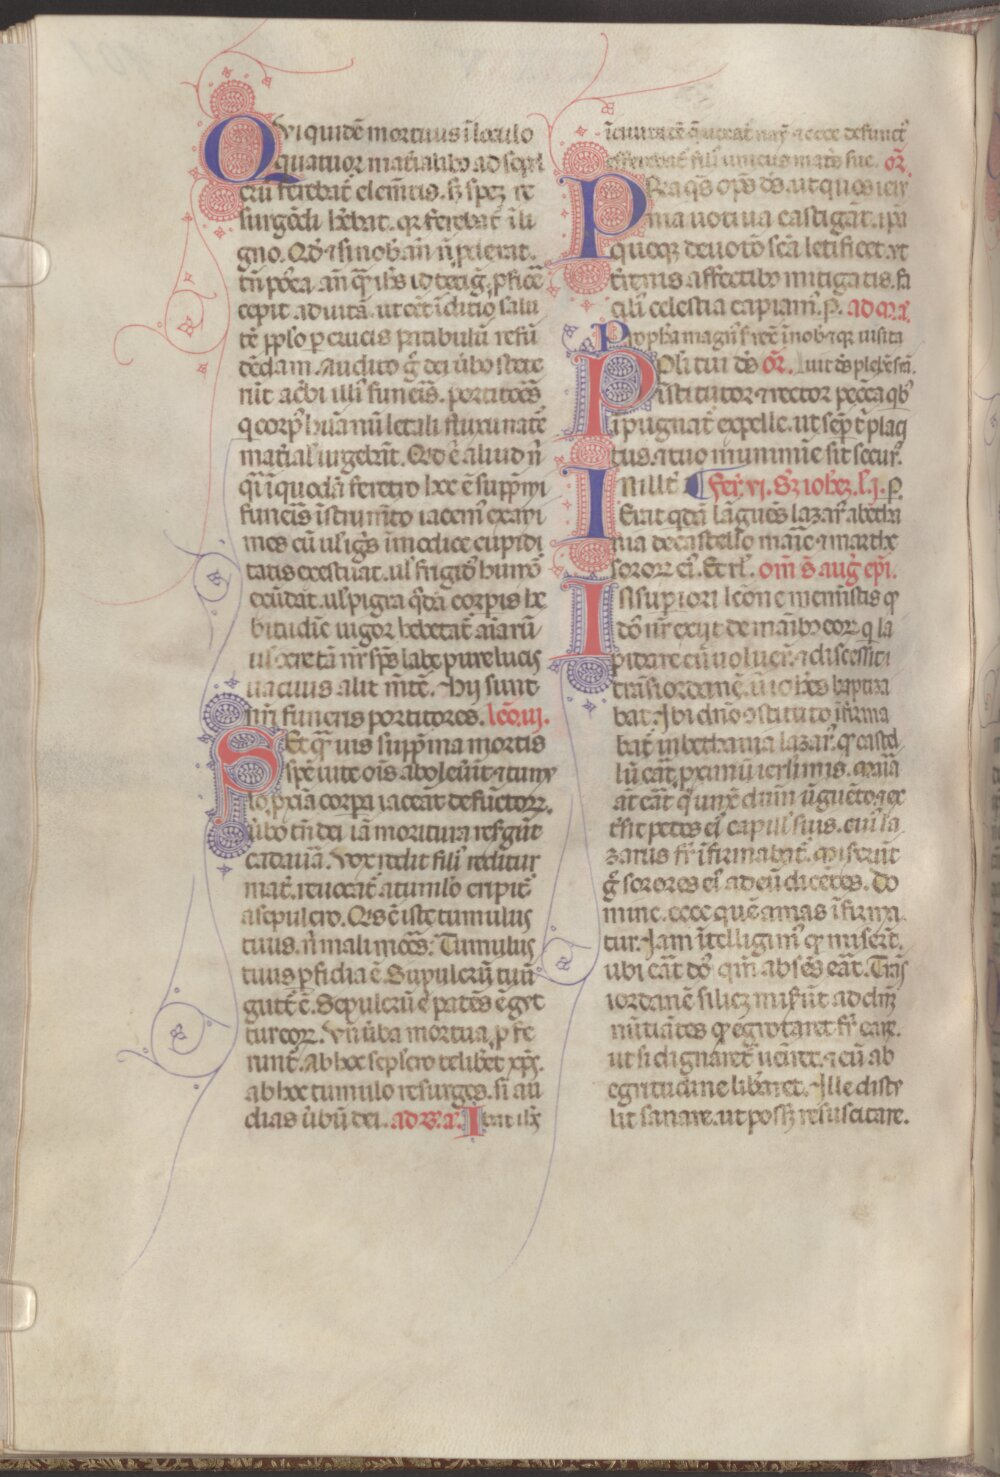 Qui quidē mortuus ī loculo
quatuor mat̄ialibꝰ ad sepul
crū ferebat̄ elemtis. s; spez re
surgēdi hēbat. qr ferebat̄ ī li
gno. Qd ⁊ si nob̄ an̄ n̄ pderat.
tn̄ postea an̄ q̄ ih̄s id tetig̅, pficē
cepit ad vitā. ut eēt īditio salu
tē pplo p crucis patibulū refū
dēdam. Audito g̊ dei ūbo stete
rūt acbi illi funeris portitores
q corpꝰ hūanū letali fluxu nate
mat̄ialis urgebāt. Qd ē aliud n̄
qn̄ ī quodā feretro hoc ē suppmi
funeris īstrumto iacemꝰ exani
mes cū ul ignis īmodice cupidi
tatis exestuat. ul frigidꝰ humor
exūdat. ul pigra qdā corpis he
bitudīe uigor hebetat̄ aīarū
ul
uacuus alit mtē. Hij sunt
nr̄i funeris portitores. lcō. iij.
Et q̄uis suppma mortis
spē uite ois aboleuīt ⁊ tumu
lo pxīa corpa iaceāt defūctoꝝ.
ūbo tn̄ dei iā moritura resgūt
cadauāa. Vox redit filiꝰ redditur
mat̄. reuocat̄ a tumulo eripit̄
a sepulcro. Qs ē iste tumulus
tuus. n̄ mali mores: Tumulus
tuus pfidia ē. Sepulcrū tuū
gutt̄ ē. Sepulcrū ē patēs ē gut
tur eoꝝ. Vn̄ ūba mortua pfe
runt̄. ab hoc sepulcro te libet xp̄s.
ab hoc tumulo resurges. si au
dias ūbū dei. ad b. a. Ibat ih̄s
ī ciuitatē q̄ uocat̄ naym ⁊ ecce defunctꝰ
efferebat̄ filiꝰ unicus matris sue. or̄.
Pr̄a qs ops ds. ut quos ieiu
nia uotiua castigāt. ipa
quoqꝫ deuotio scā letificet. ut
t̄renis affectibꝰ mitigatis. fa
ciliꝰ celestia capiamꝰ. p. ad m. a.
Propha magnꝰ surrexit īnob̄ ⁊ qr uisita
Ppli tui ds or̄. uit ds plebē suā.
īstitutor ⁊ rector peccā qbꝰ
īpugnat̄ expelle. ut semp t̄ placi
tus. ⁊ tuo munimie sit securꝰ.
In illo t̄ Fer̄. vi. Sz ioh̄ez. l. j. P.
Erat qdā lāguēs lazarꝰ a betha
nia de castello marie ⁊ marthe
sororū eiꝰ. Et rl. om̄. s. aug̅. epi.
In supiori lcōne meministis qꝫ
dn̄s exijt de manibꝰ eoꝝ q la
pidare eū uoluerūt. ⁊ discessit
trās iordanē. ubi ioh̄es baptiza
bat. Ibi dn̄o ↄstituto īfirma
bat̄ in bethania lazarꝰ. qꝫ castel
lū erat pximū ierl̄imis. Maria
at̄ erat q unxit dn̄m ūguēto ⁊ ex
t̄sit pedes eiꝰ capillꝰ suis. cuiꝰ la
zarus fr̄ īfirmabat̄. Miserūt
g̊ sorores eiꝰ ad eū dicētes. Do
mine. ecce quē amas īfirma
tur. Iam ītelligimꝰ qꝫ miserūt.
ubi erat dn̄s. qm̄ absēs erat. Trās
iordanē scilicꝫ miserūt ad dn̄m
nūtiātes qꝫ egrotaret fr̄ eaꝝ.
ut si dignaret̄ uenire. ⁊ eū ab
egritudine libaret. Ille distu
lit sanare. ut possꝫ resuscitare.